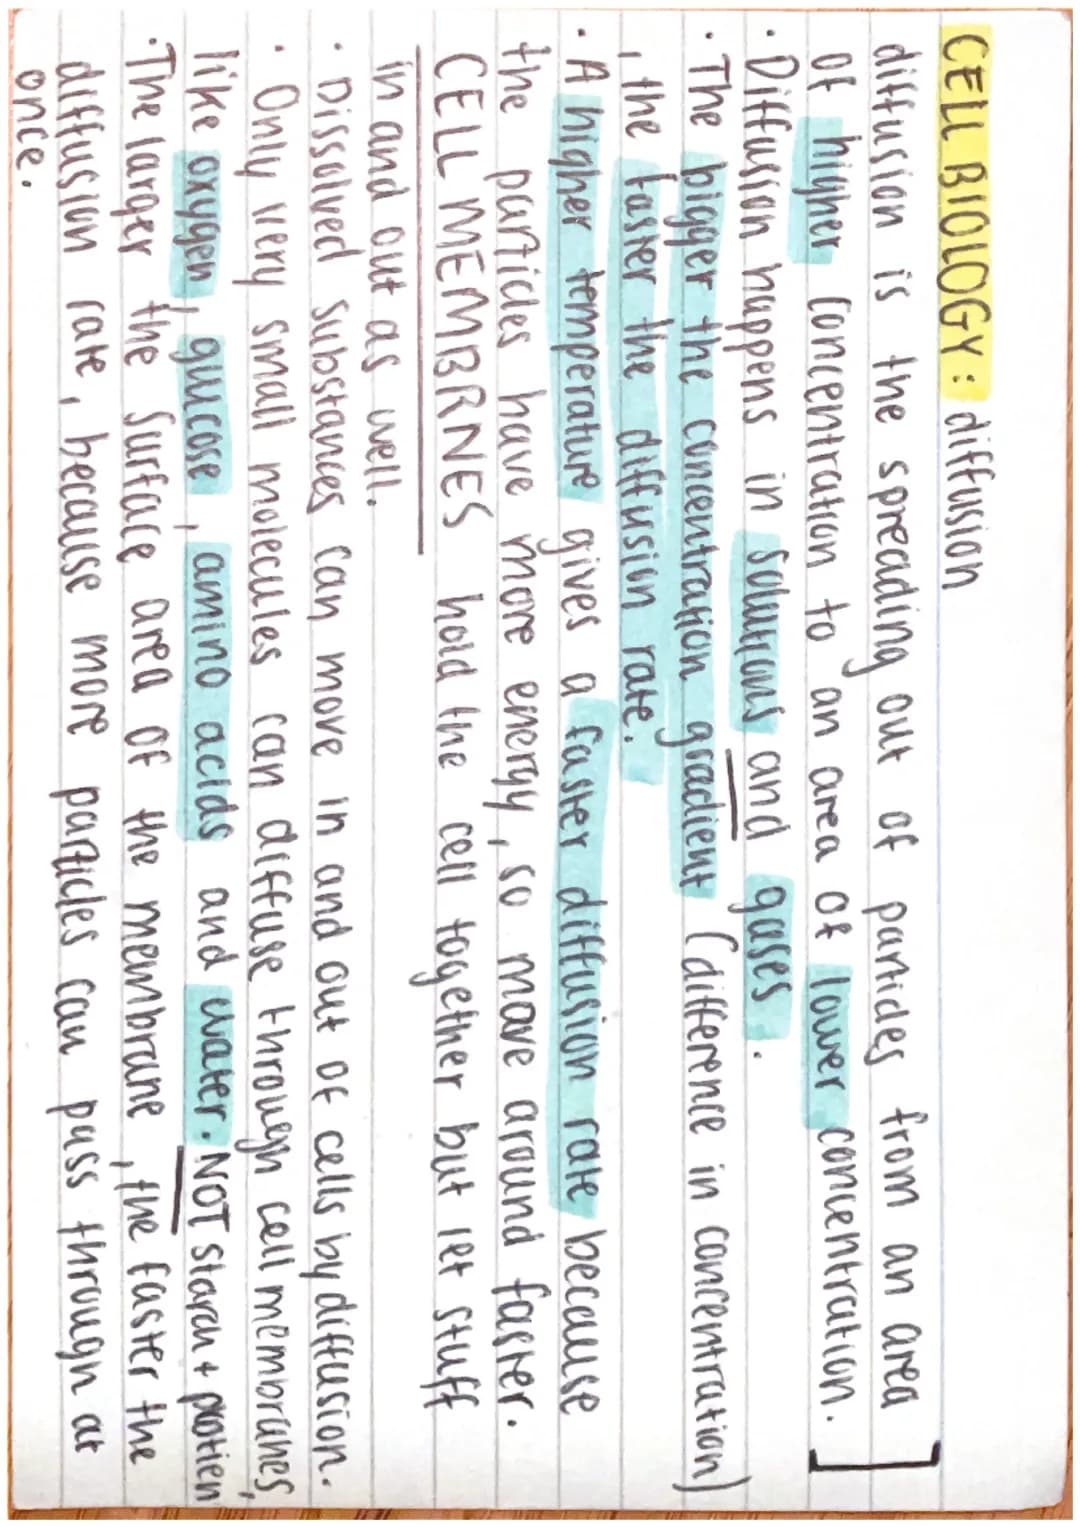 CELL BIOLOGY: diffusion
diffusion is the spreading out of particles from an area
of higher concentration to an area of lower concentration.
• Diffusion happens in solutions and gases.
• The bigger the concentration gradient (difference in concentration)
, the faster the diffusion rate.
• A higher temperature gives a faster diffusion rate because
the particles have more energy, so move around faster.
CELL MEMBRNES hold the cell together but let stuff
in and out as well.
• Dissolved substances can move in and out of cells by diffusion.
• Only very small molecules can diffuse through cell membranes,
like oxygen, glucose, amino acids and water. NOT starch + protien
• The larger the surface area of the membrane, the faster the
diffusion rate, because more particles can pass through at
once.